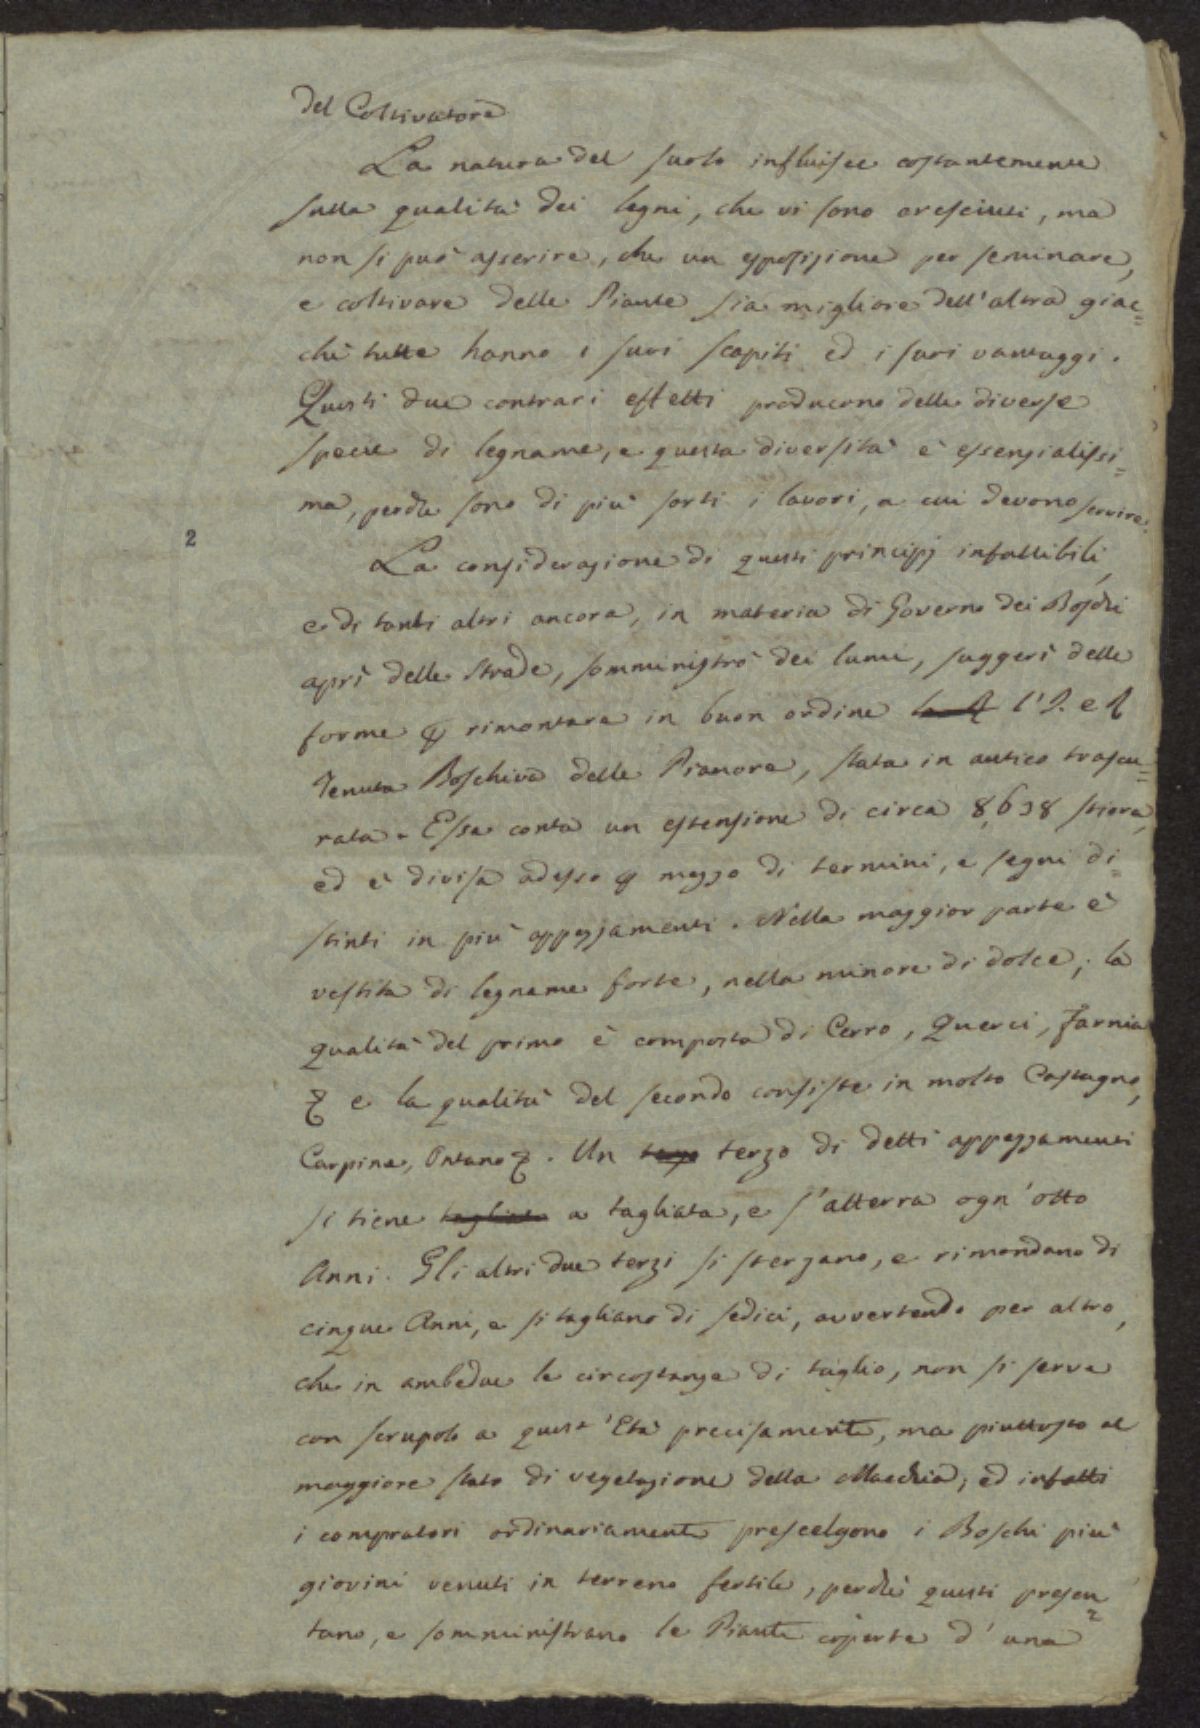 del Coltivatore
La natura del suolo influisce costantemente
sulla qualità dei legni, che vi sono cresciuti, ma
non si può asserire, che un esposizione per seminare,
e coltivare delle Piante sia migliore dell'altra giac=
chè tutte hanno i suoi scapiti ed i suoi vantaggi.
Questi due contrari effetti producono delle diverse
specie di legname, e questa diversità è essenzialissi=
ma, perchè sono di più sorti i lavori, a cui devono servire.
2
La considerazione di questi principj infallibili,
e di tanti altri ancora, in materia di Governo dei Boschi
aprì delle strade, somministrò dei lumi, suggerì delle
forme p rimontare in buon ordine l'I. e R
Tenuta Boschiva delle Pianore, stata in antico trascu=
rata. Essa conta un estensione di circa 8,638 stiora,
ed è divisa adesso p mezzo di termini, e segni di=
stinti in più appezzamenti. Nella maggior parte è
vestita di legname forte, nella minore di dolce; la
qualità del primo è composta di Cerro, Querci, Farnia
e la qualità del secondo consiste in molto Castagno,
Carpine, Ontano. Un terzo di detti appezzamenti
si tiene tagliata a tagliata, e s'atterra ogn'otto
Anni. Gli altri due terzi si sterzano, e rimondano di
cinque Anni, e si tagliano di sedici, avvertendo per altro,
che in ambedue le circostanze di taglio, non si serve
con scrupolo a quest'Età precisamente, ma piuttosto al
maggiore stato di vegetazione della Macchia; ed infatti
i compratori ordinariamente prescelgono i Boschi più
giovini venuti in terreno fertile, perchè questi presen=
tano, e somministrano le Piante coperte d'una